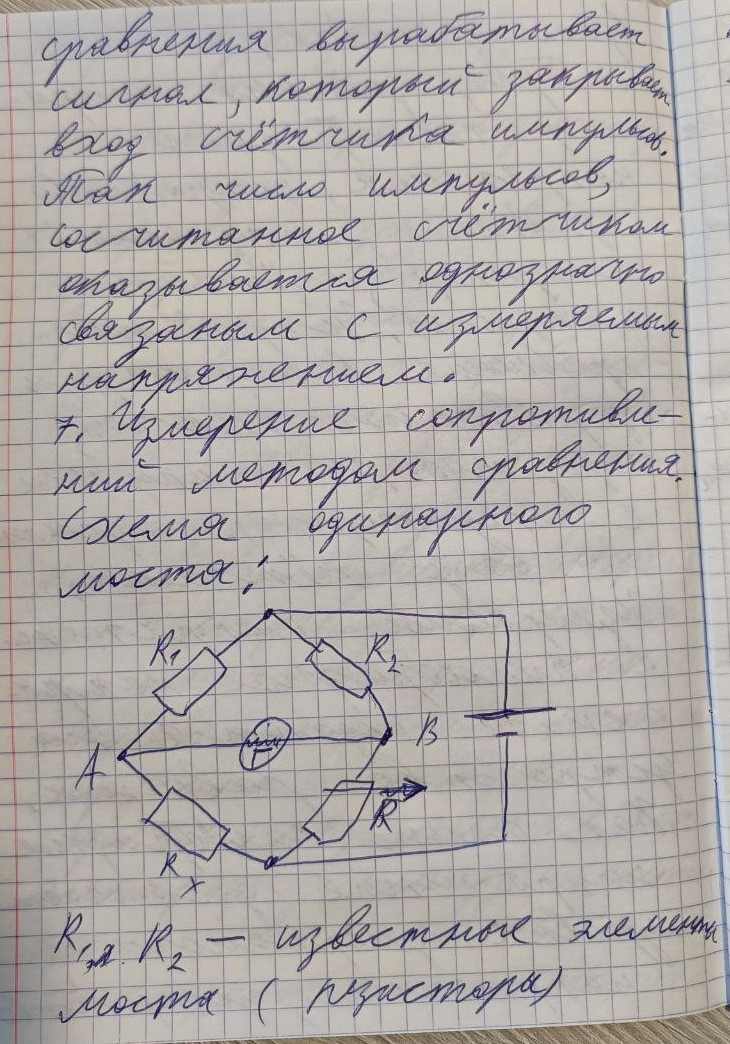 сравнения вырабатывает
сигнал, который закрывает
вход счётчика импульсов.
Так число импульсов,
сосчитанное счётчиком
оказывается однозначно
связаным с измеряемым
напряжением.
7. Измерение сопротивле-
ний методом сравнения.
Схема одинарного
моста:
R1
R2
A
B
R
Rx
R1, R2 — известные элементы
моста (резисторы)